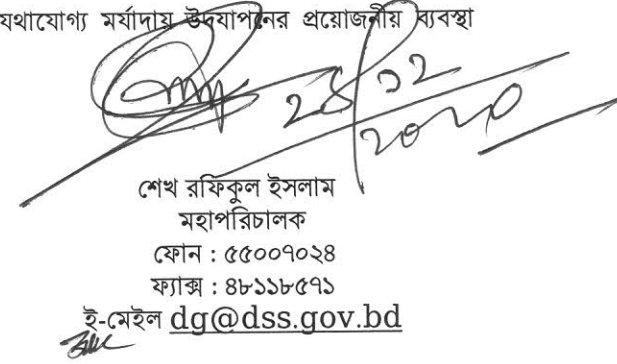 যথাযোগ্য মর্যাদায় উদযাপনের প্রয়োজনীয় ব্যবস্থা
শেখ রফিকুল ইসলাম
মহাপরিচালক
ফোন : ৫৫০০৭০২৪
ফ্যাক্স : ৪৮১১৮৫৭১
ই-মেইল dg@dss.gov.bd